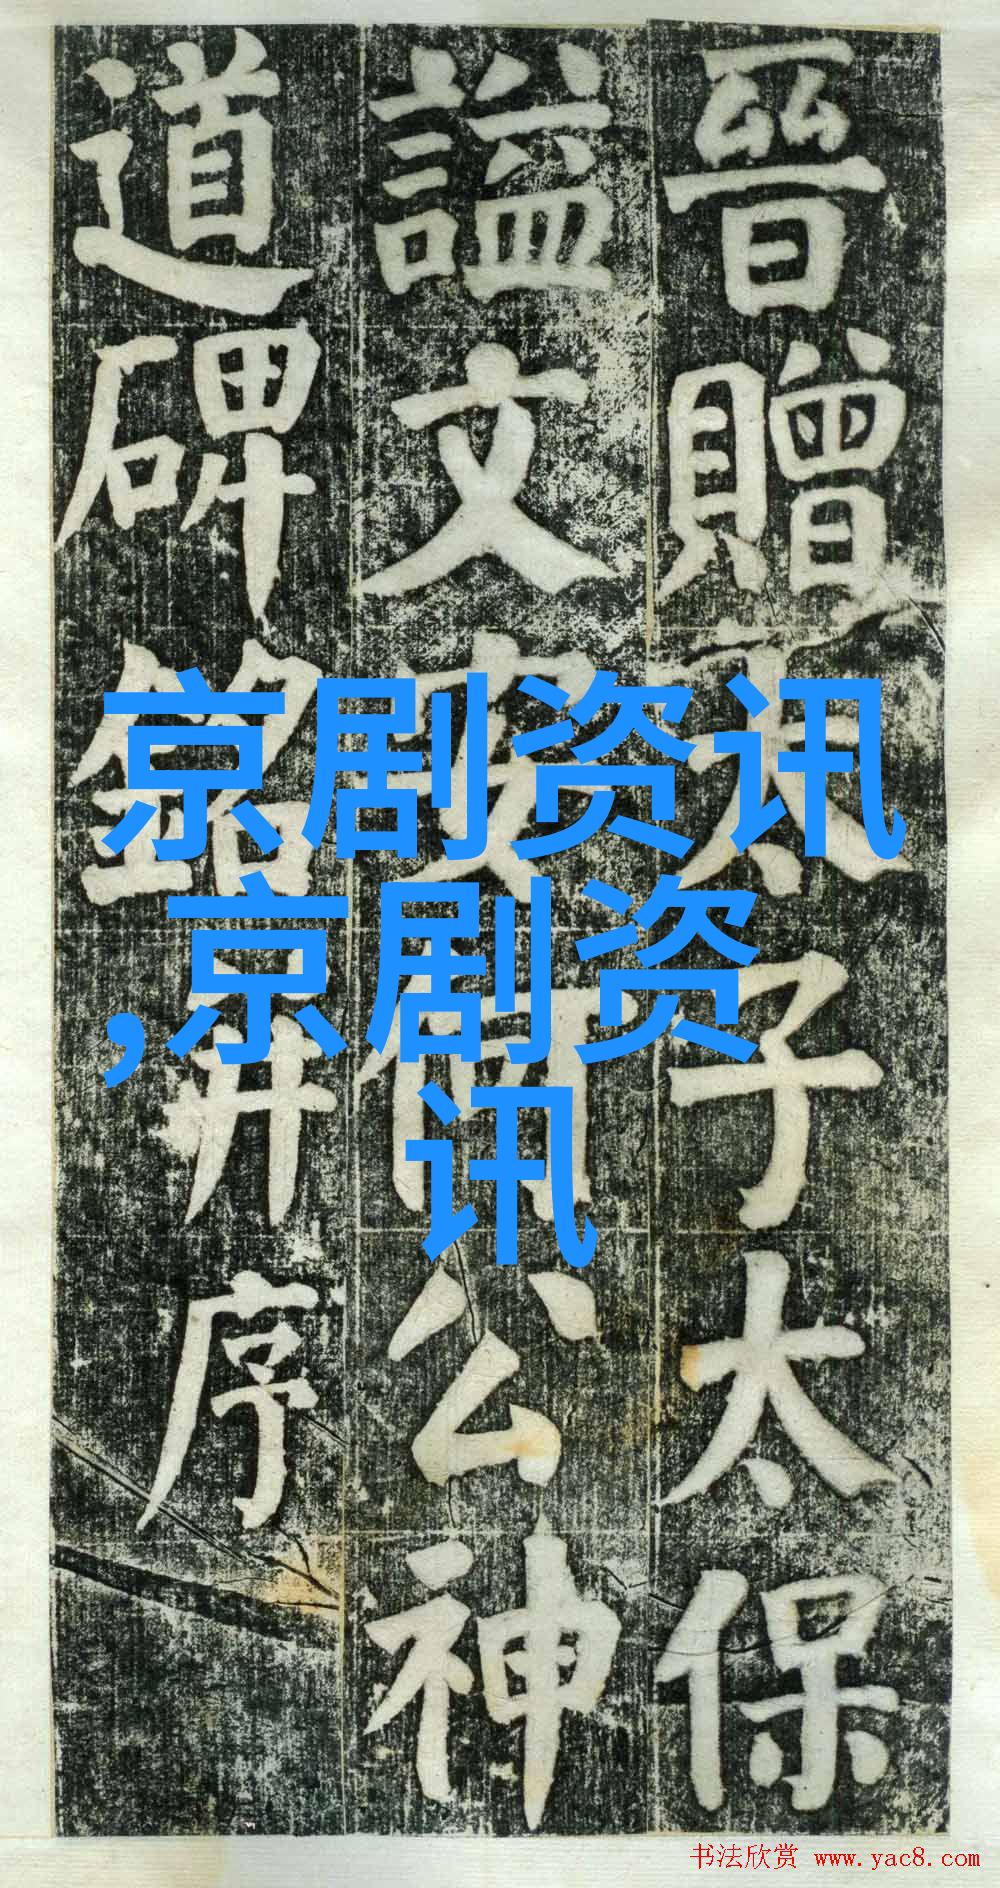 晉贈太子太保
謚文安何公神
道碑銘并序
京剧资讯
,京剧资
讯
书法欣赏 www.yac8.com